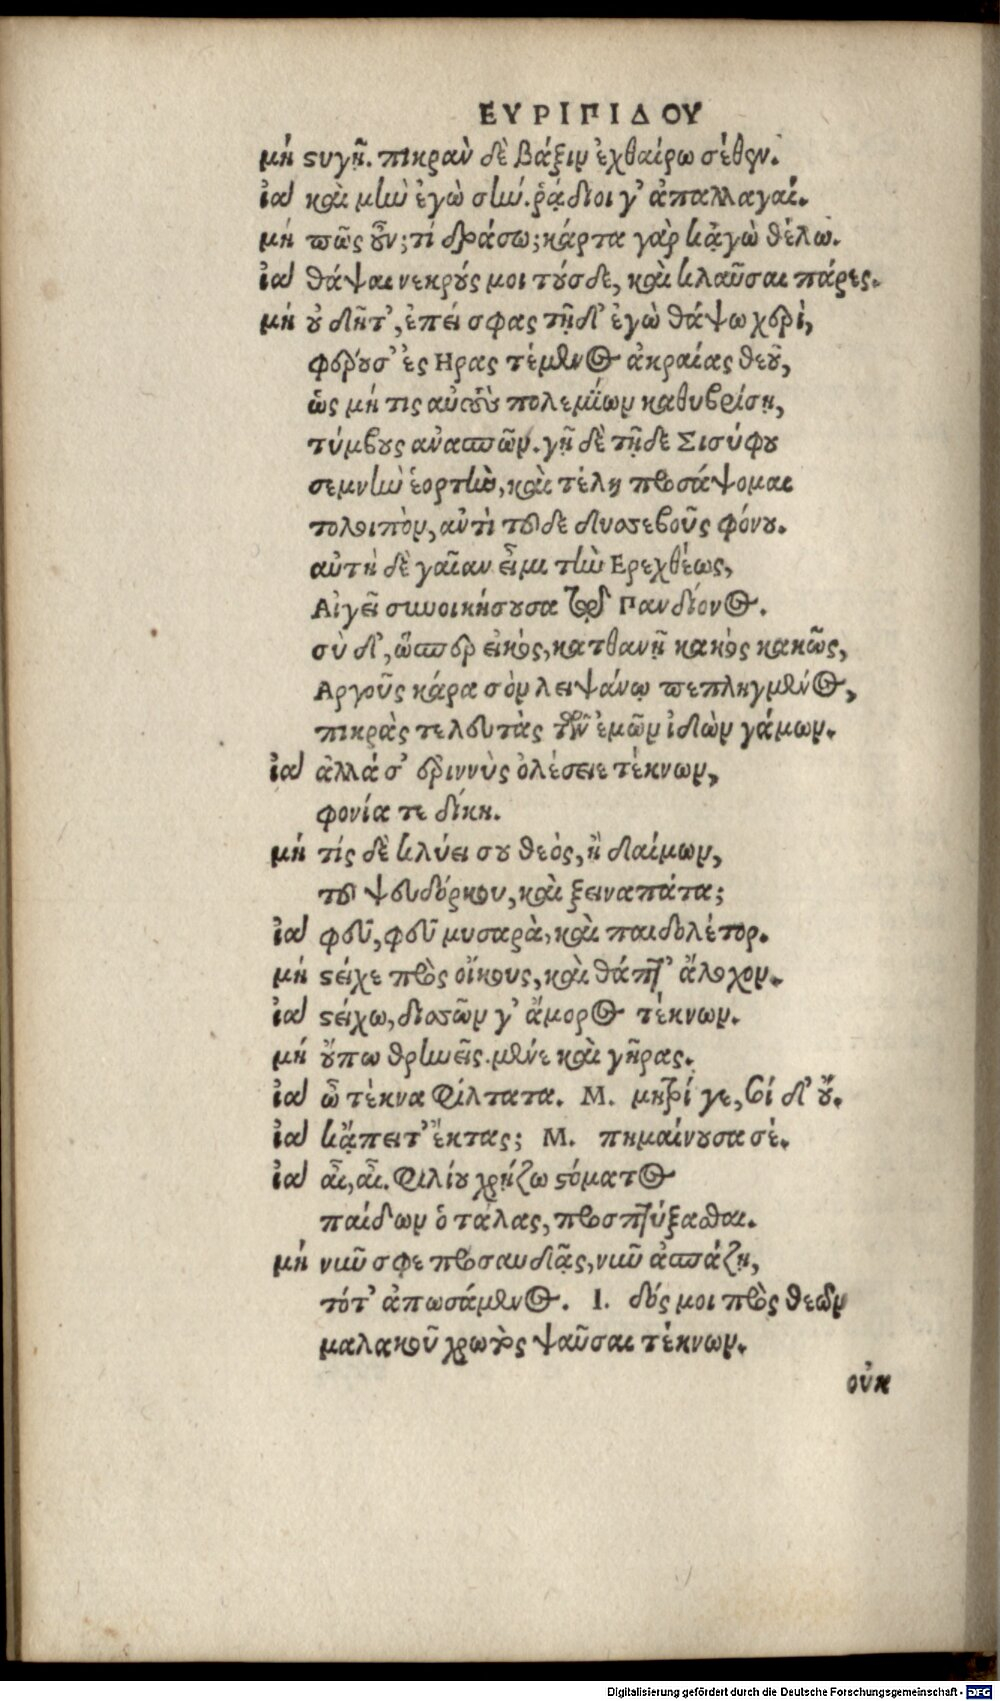 ΕΥΡΙΠΙΔΟΥ
μή στυγῇ. πικρὰν δὲ βάξιν ἐχθαίρω σέθεν.
ἰα καὶ μὴν ἐγὼ σήν. ῥᾴδιοι γ' ἀπαλλαγαί.
μή πῶς οὖν; τί δράσω; κάρτα γὰρ κᾀγὼ θέλω.
ἰα θάψαι νεκρούς μοι τούσδε, καὶ κλαῦσαι πάρες.
μή οὐ δῆτ', ἐπεί σφας τῇδ' ἐγὼ θάψω χερὶ,
φέρουσ' ἐς Ηρας τέμενος ἀκραίας θεοῦ,
ὡς μή τις αὐτοὺς πολεμίων καθυβρίσῃ,
τύμβους ἀνασπῶν. γῇ δὲ τῇδε Σισύφου
σεμνὴν ἑορτὴν, καὶ τέλη προσάψομαι
τολοιπὸν, ἀντὶ τοῦδε δυσσεβοῦς φόνου.
αὐτὴ δὲ γαῖαν εἶμι τὴν Ερεχθέως,
Αἰγεῖ συνοικήσουσα τῷ Πανδίονος.
σὺ δ', ὥσπερ εἰκὸς, κατθανῇ κακὸς κακῶς,
Αργοῦς κάρα σὸν λειψάνῳ πεπληγμένος,
πικρὰς τελευτὰς τῶν ἐμῶν ἰδὼν γάμων.
ἰα ἀλλά σ' ἐριννὺς ὀλέσειε τέκνων,
φονία τε δίκη.
μή τίς δὲ κλύει σου θεὸς, ἢ δαίμων,
τοῦ ψευδόρκου, καὶ ξειναπάτα;
ἰα φεῦ, φεῦ μυσαρὰ, καὶ παιδολέτορ.
μή στεῖχε πρὸς οἴκους, καὶ θάπτ' ἄλοχον.
ἰα στείχω, δισσῶν γ' ἄμορος τέκνων.
μή οὔπω θρηνεῖς. μένε καὶ γῆρας.
ἰα ὦ τέκνα φίλτατα. Μ. μητρί γε, σοί δ' οὔ.
ἰα κᾄπειτ' ἔκτας; Μ. πημαίνουσα σέ.
ἰα αἶ, αἶ. φιλίου χρῄζω στόματος
παίδων ὁ τάλας, προσπτύξασθαι.
μή νῦν σφε προσαυδᾷς, νῦν ἀσπάζῃ,
τότ' ἀπωσάμενος. Ι. δός μοι πρὸς θεῶν
μαλακοῦ χρωτὸς ψαῦσαι τέκνων.
οὐκ
Digitalisierung gefördert durch die Deutsche Forschungsgemeinschaft - DFG